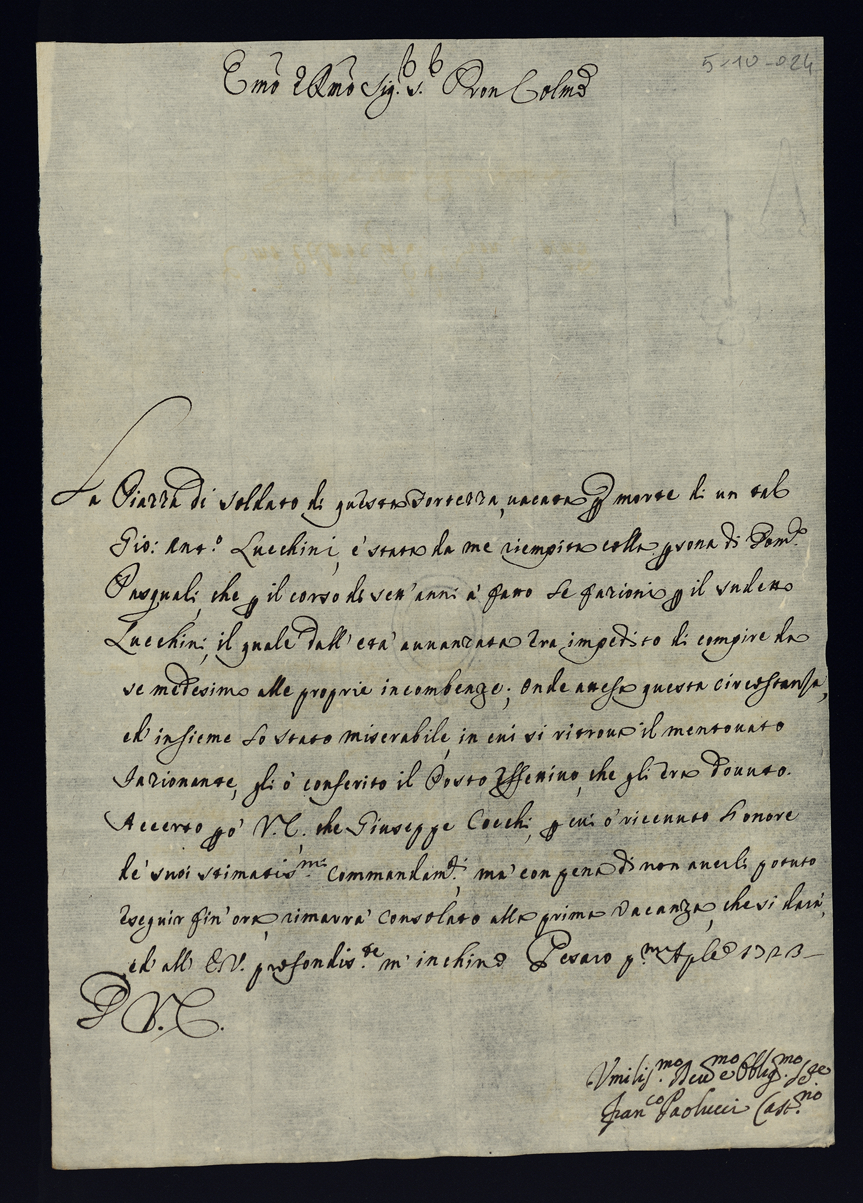 5-10-024
Emo e Rmo Sig.r S.r Pron Colmo
La Piazza di soldato di questa Fortezza, vacata p morte di un tal
Gio: Ant.o Lucchini, è stata da me riempita colla psona di Dom.co
Pasquali, che p il corso di sett'anni à fatto le fazioni p il sudetto
Lucchini, il quale dall'età avvanzata era impedito di compire da
se medesimo alle proprie incombenze; onde attesa questa circostanza,
ed insieme lo stato miserabile, in cui si ritrova il mentovato
Fazionante, gli ò conferito il Posto effettivo, che gli era dovuto.
Accerto pò V.E. che Giuseppe Cecchi, p cui ò ricevuto l'onore
de' suoi stimatis.mi commandam.ti, mà con pena di non averli potuto
eseguir fin'ora, rimarrà consolato alla prima vacanza, che si darà,
ed all'E.V. profondis.te m'inchino Pesaro p.mo Aple 1723
D V.E.
Vmilis.mo Deu.mo e Oblig.mo S.re
Fran.co Paolucci Cast.no